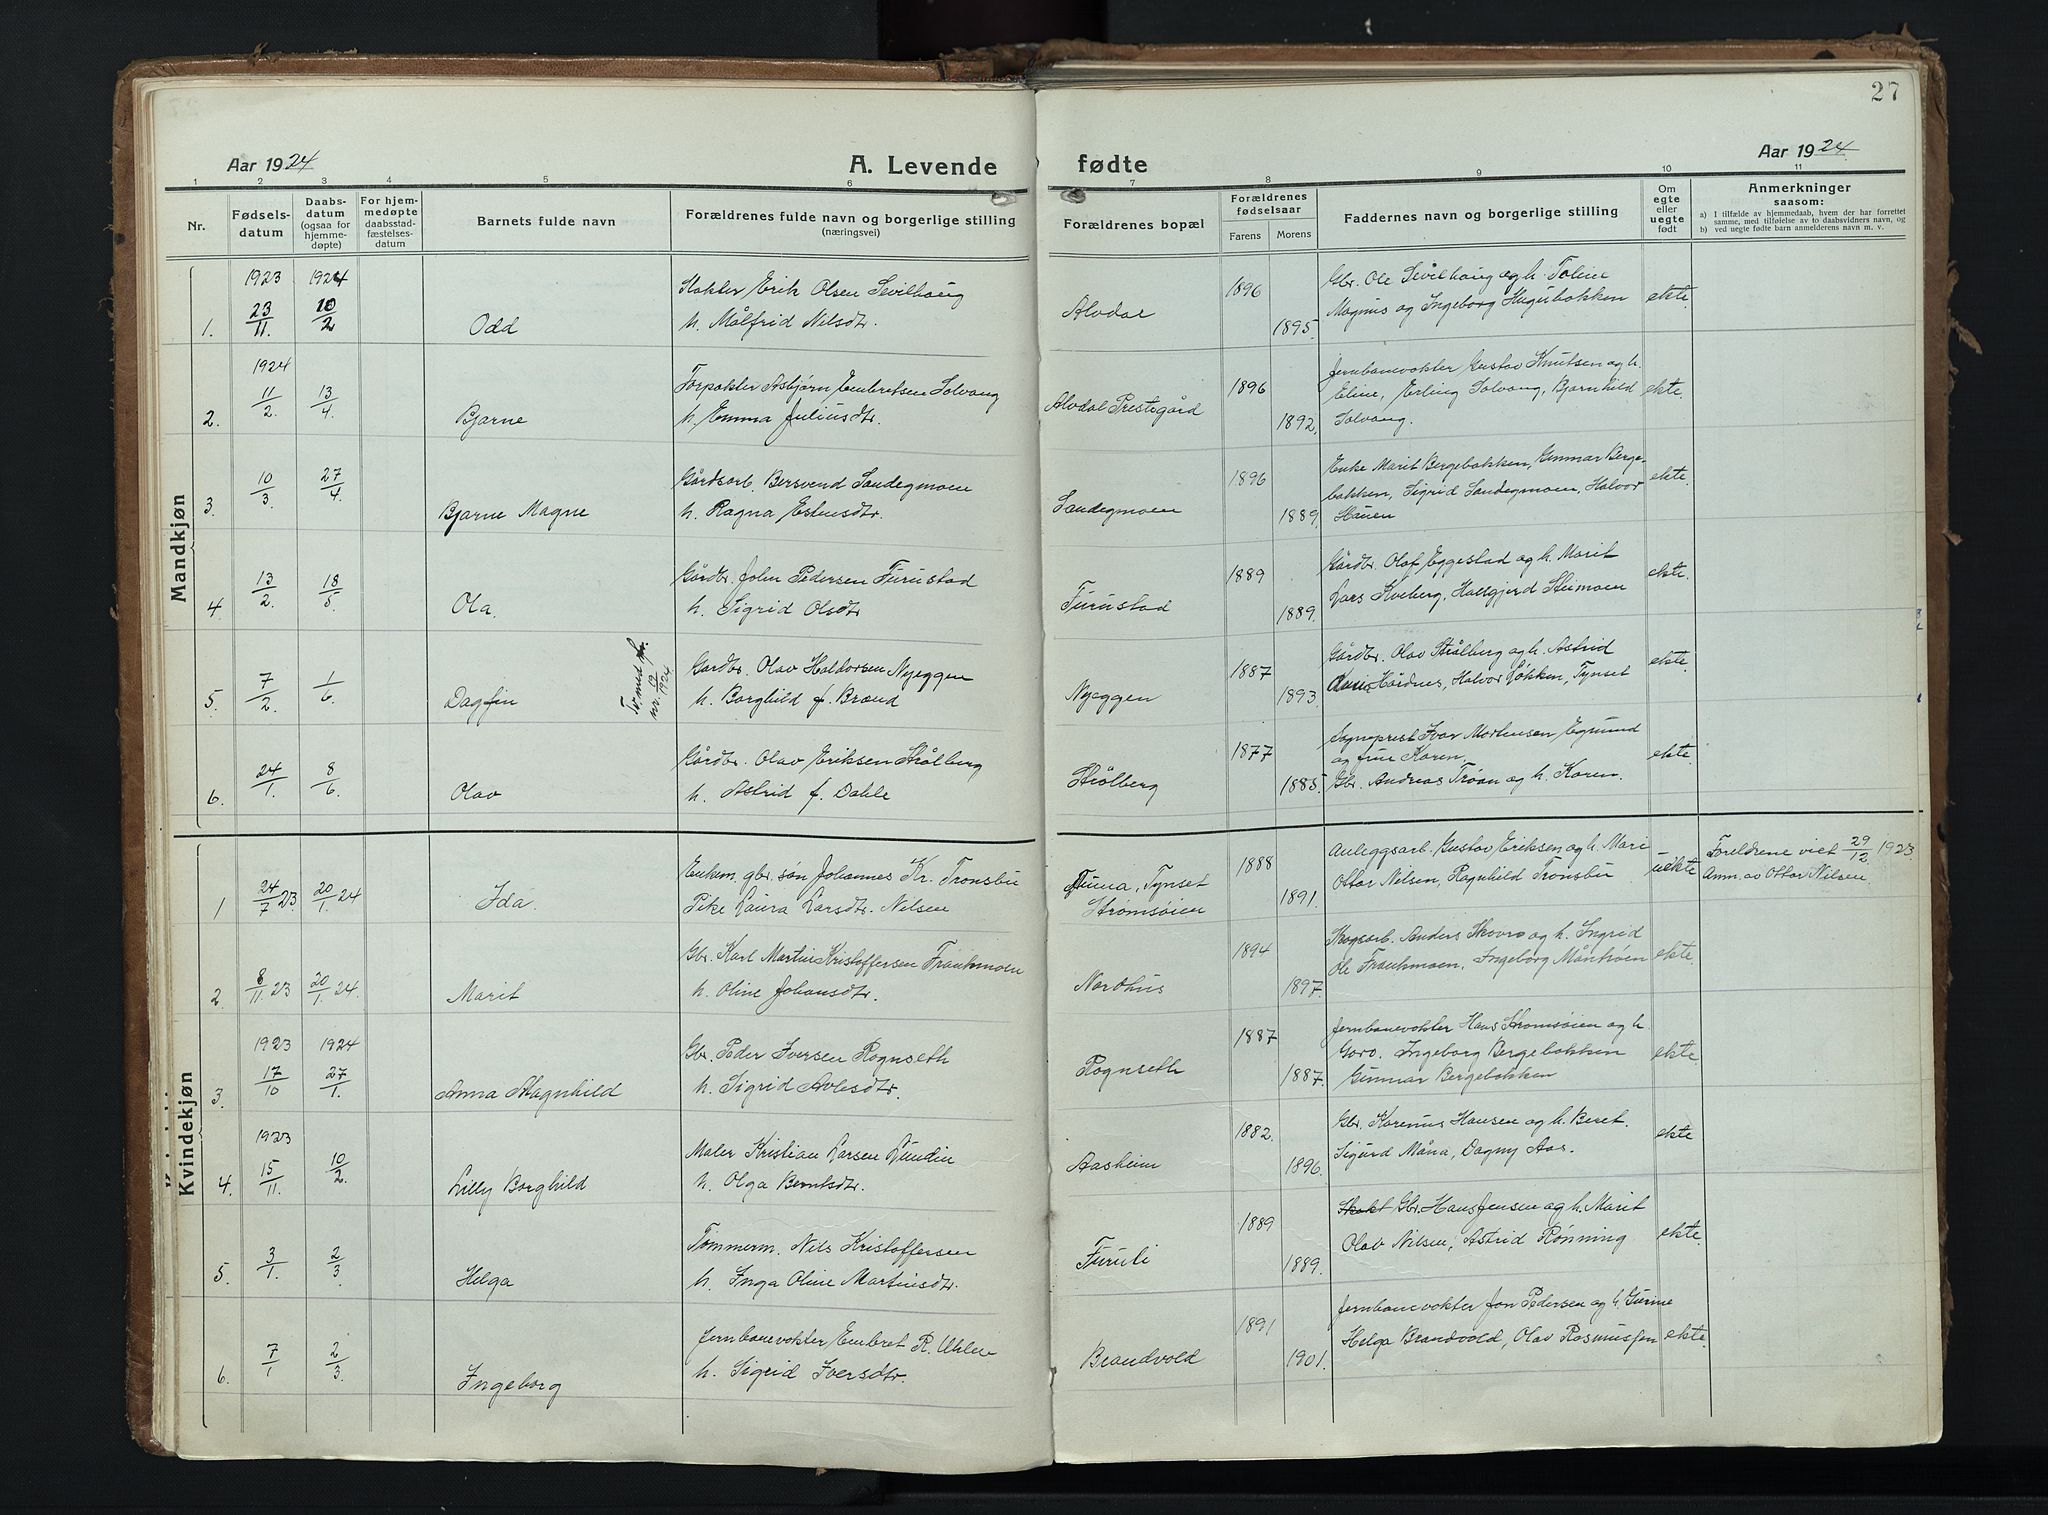 27
Aar 1924 A. Levende fødte Aar 1924
1 2 3 4 5 6 7 8 9 10 11
Nr. Fødsels-datum Daabs-datum (ogsaa for hjemme-døpte) For hjem-medøpte daabsstad-fæstelses-datum Barnets fulde navn Forældrenes fulde navn og borgerlige stilling (næringsvei) Forældrenes bopæl Forældrenes fødselsaar Farens Morens Faddernes navn og borgerlige stilling Om egte eller uegte født Anmerkninger saasom:
a) I tilfælde av hjemmedaab, hvem der har forrettet samme, med tilføielse av to daabsvidners navn, og
b) ved uegte fødte barn anmelderens navn m. v.
Mandkjøn
1923 1924 Erik Olsen Sevilhaug 1896 Gbr. Ole Sevilhaug og h. Toline
1. 23/11. 10/2 Odd h. Målfrid Nilsdtr. Alvdal 1895. Magnus og Ingeborg Hugubakken ekte.
1924 Forpakter Asbjørn Embretsen Solvang 1896 Jernbanevokter Gustav Knutsen og h.
2. 11/2. 13/4. Bjarne h. Emma Juliusdtr. Alvdal Prestegård 1892. Eline, Erling Solvang, Bjarnhild ekte.
Solvang.
Gårdsarb. Bersvend Sandegmoen 1896 Enke Marit Bergebakken, Gunnar Berge-
3. 10/3. 27/4. Bjarne Magne h. Ragna Estensdtr. Sandegmoen 1889. bakken, Sigrid Sandegmoen, Halvor ekte.
Hauen
Gårdbr. John Pedersen Furustad 1889 Gårdbr. Olaf Eggestad og h. Marit
4. 13/2. 18/5. Ola. h. Sigrid Olsdtr Furustad 1889. Lars Kveberg, Hallgjerd Steimoen ekte.
Gardbr. Olav Haldorsen Nyeggen 1887 Gårdbr. Olav Strålberg og h. Astrid
5. 7/2. 1/6. Dagfin nr. 19/1924 h. Borghild f. Brand Nyeggen 1893. Hårdnes, Halvor Løkken, Tynset ekte.
Gårdbr. Olav Eriksen Strålberg 1877 Sogneprest Ivar Mortensen Egnund
6. 24/1. 8/6. Olav h. Astrid f. Dahle Strålberg 1885. og frue Karen. ekte.
Gbr. Andreas Trøan og h. Karen.
Kvindekjøn
Enkem. gbr. søn Johannes Kr. Tronsbu 1888 Anleggsarb. Gustav Eriksen og h. Mari Foreldrene viet 29/12. 1923.
1 24/7 23. 20/1. 24 Ida. Pike Laura Larsdtr. Nilsen Auma, Tynset Strømsøien 1891. Ottar Nilsen, Ragnhild Tronsbu uekte Anm. av Ottar Nilsen.
Gbr. Karl Martin Kristoffersen Frankmoen 1894 Skogsarb. Anders Skovro og h. Ingrid
2. 8/11. 23 20/1. 24. Marit h. Oline Johansdtr. Nordhus 1897. Ole Frankmoen. Ingeborg Månhøen ekte.
1923 1924 Gbr. Peder Iversen Rognseth 1887 Jernbanevokter Hans Strømsøien og h.
3. 17/10 27/1. Anna Magnhild h. Sigrid Avlesdtr. Rognseth 1887. Goro. Ingeborg Bergebakken ekte.
Gunnar Bergebakken
1923 Maler Kristian Larsen Lundin 1882. Gbr. Karenus Hansen og h. Beret.
4. 15/11. 10/2. Lilly Borghild h. Olga Berntsdtr. Aasheim 1896. Sigurd Måna, Dagny Aas. ekte
Tømmerm. Nils Kristoffersen 1889 Gbr. Hans Jensen og h. Marit
5. 3/1. 2/3. Helga h. Inga Oline Martinsdtr. Furuli 1889. Olav Nilsen, Astrid Rønning ekte.
Jernbanevokter Embret R. Uhlen 1891 Jernbanevokter Jon Pedersen og h. Gurine
6. 7/1 2/3. Ingeborg h. Sigrid Iversdtr. Brandvold 1901. Helga Brandvold, Olav Rasmussen ekte.